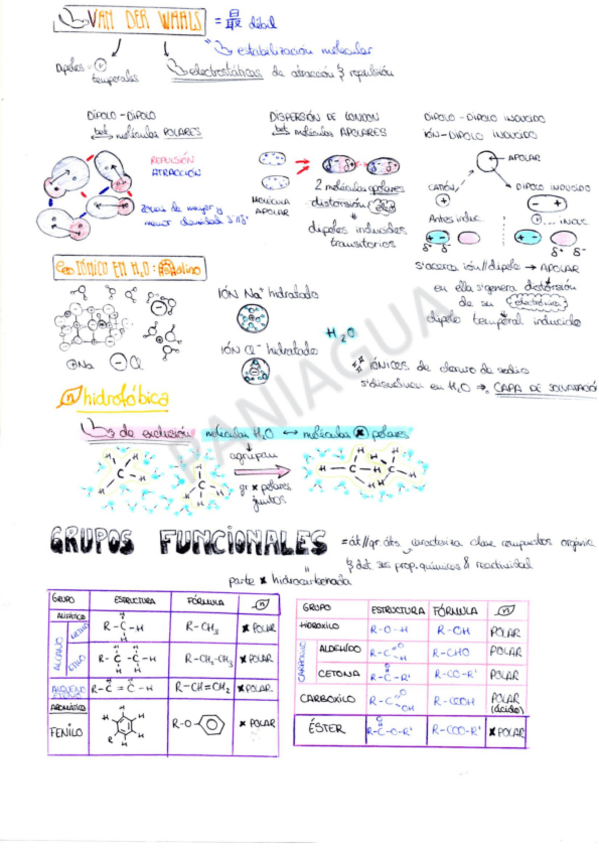 VAN DER WAALS = 最 débil
estabilización molecular
Dipolos = temporales
electrostáticas de atracción & repulsión
DIPOLO - DIPOLO
bet moléculas POLARES
REPULSIÓN
ATRACCIÓN
zonas de mayor y
menor densidad
DISPERSIÓN DE LONDON
bet moléculas APOLARES
MOLÉCULA
APOLAR
2 moléculas apolares
distorsión
dipolos inducidos
transitorios
DIPOLO - DIPOLO INDUCIDO
IÓN - DIPOLO INDUCIDO
APOLAR
CATIÓN
DIPOLO INDUCIDO
Antes induc.
δ- δ+ δ- δ+
s'acerca ión//dipolo → APOLAR
en ella s'genera distorsión
de su electrónica
dipolo temporal inducido
IÓNICO EN H₂O: salino
Na Cl
IÓN Na⁺ hidratado
IÓN Cl⁻ hidratado
H₂O
IÓNICOS de cloruro de sodio
s'disuelven en H₂O → CAPA DE SOLVATACIÓN
hidrofóbica
de exclusión moléculas H₂O ↔ moléculas × polares
agrupan
gr × polares
juntos
PANIAGUA
GRUPOS FUNCIONALES = át//gr. áts. caracteriza clase compuestos orgánic
& det. sus prop. químicas & reactividad
parte × hidrocarbonada
GRUPO ESTRUCTURA FÓRMULA
ALIFÁTICO
ALCANO
METILO R-CH₃ × POLAR
ETILO R-CH₂-CH₃ × POLAR
ALQUENO R-CH=CH₂ × POLAR
AROMÁTICO
FENILO R-O × POLAR
GRUPO ESTRUCTURA FÓRMULA
HIDROXILO R-O-H R-OH POLAR
CARBONILO
ALDEHÍDO R-CHO POLAR
CETONA R-C-R' R-CO-R' POLAR
CARBOXILO R-COOH POLAR (ácido)
ÉSTER R-C-O-R' R-COO-R' × POLAR